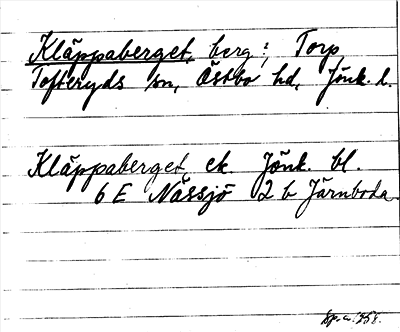 Kläppaberget, berg; Torp
Tofteryds sn, Östbo hd, Jönk. l.
Kläppaberget, ek. Jönk. bl.
6 E Nässjö 2 b Järnboda.